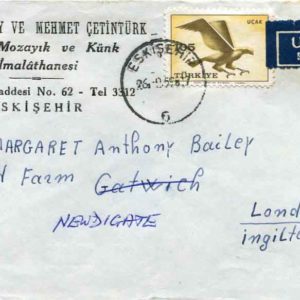 Y VE MEHMET ÇETİNTÜRK
Mozayık ve Künk
İmalâthanesi
addesi No. 62 - Tel 3312
ESKİŞEHİR
UÇAK
105
TÜRKİYE
ESKİŞEHİR
6
MARGARET Anthony Bailey
Farm Gatwich
NEWDIGATE
Lond
ingilt